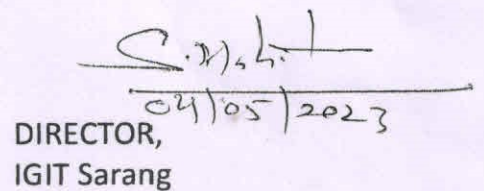 04/05/2023
DIRECTOR,
IGIT Sarang